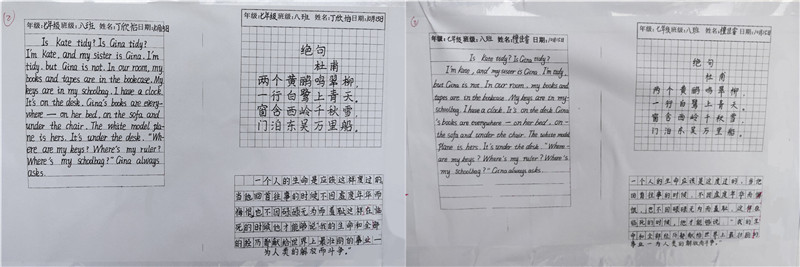 ②
年级:七年级 班级:八班 姓名:丁欣怡 日期:10月15日
Is Kate tidy? Is Gina tidy?
I'm Kate, and my sister is Gina. I'm
tidy, but Gina is not. In our room, my
books and tapes are in the bookcase. My
keys are in my schoolbag. I have a clock.
It's on the desk. Gina's books are every-
where — on her bed, on the sofa and
under the chair. The white model pla-
ne is hers. It's under the desk. "Wh-
ere are my keys? Where's my ruler?
Where's my schoolbag?" Gina always
asks.
年级:七年级 班级:八班 姓名:丁欣怡 日期:10月15日
绝句
杜甫
两个黄鹂鸣翠柳,
一行白鹭上青天。
窗含西岭千秋雪,
门泊东吴万里船。
一个人的生命是应该这样度过的:
当他回首往事的时候不因虚度年华而
悔恨,也不因碌碌无为而羞耻这样在临
死的时候他才能够说"我的生命和全部
的精力都献给世界上最壮丽的事业一
为人类的解放而斗争。"
年级:七年级 班级:八班 姓名: 日期:10月15日
Is Kate tidy? Is Gina tidy?
I'm Kate, and my sister is Gina. I'm tidy,
but Gina is not. In our room, my books and
tapes are in the bookcase. My keys are in my
schoolbag. I have a clock. It's on the desk. Gina
's books are everywhere — on her bed, on -
the sofa and under the chair. The white model
plane is hers. It's under the desk. "Where
are my keys? Where's my ruler? Where's
my schoolbag?" Gina always asks.
年级:七年级 班级:八班 姓名: 日期:10月15日
绝句
杜甫
两个黄鹂鸣翠柳,
一行白鹭上青天。
窗含西岭千秋雪,
门泊东吴万里船。
一个人的生命应该是这度过的,当他
回首往事的时候,不因虚度年华而悔
恨,也不因碌碌无为而羞耻,这样在
临死的时候,他才能够说:"我的生
命和全部精力都献给世界上最壮丽的事
业一为人类的解放而斗争。"